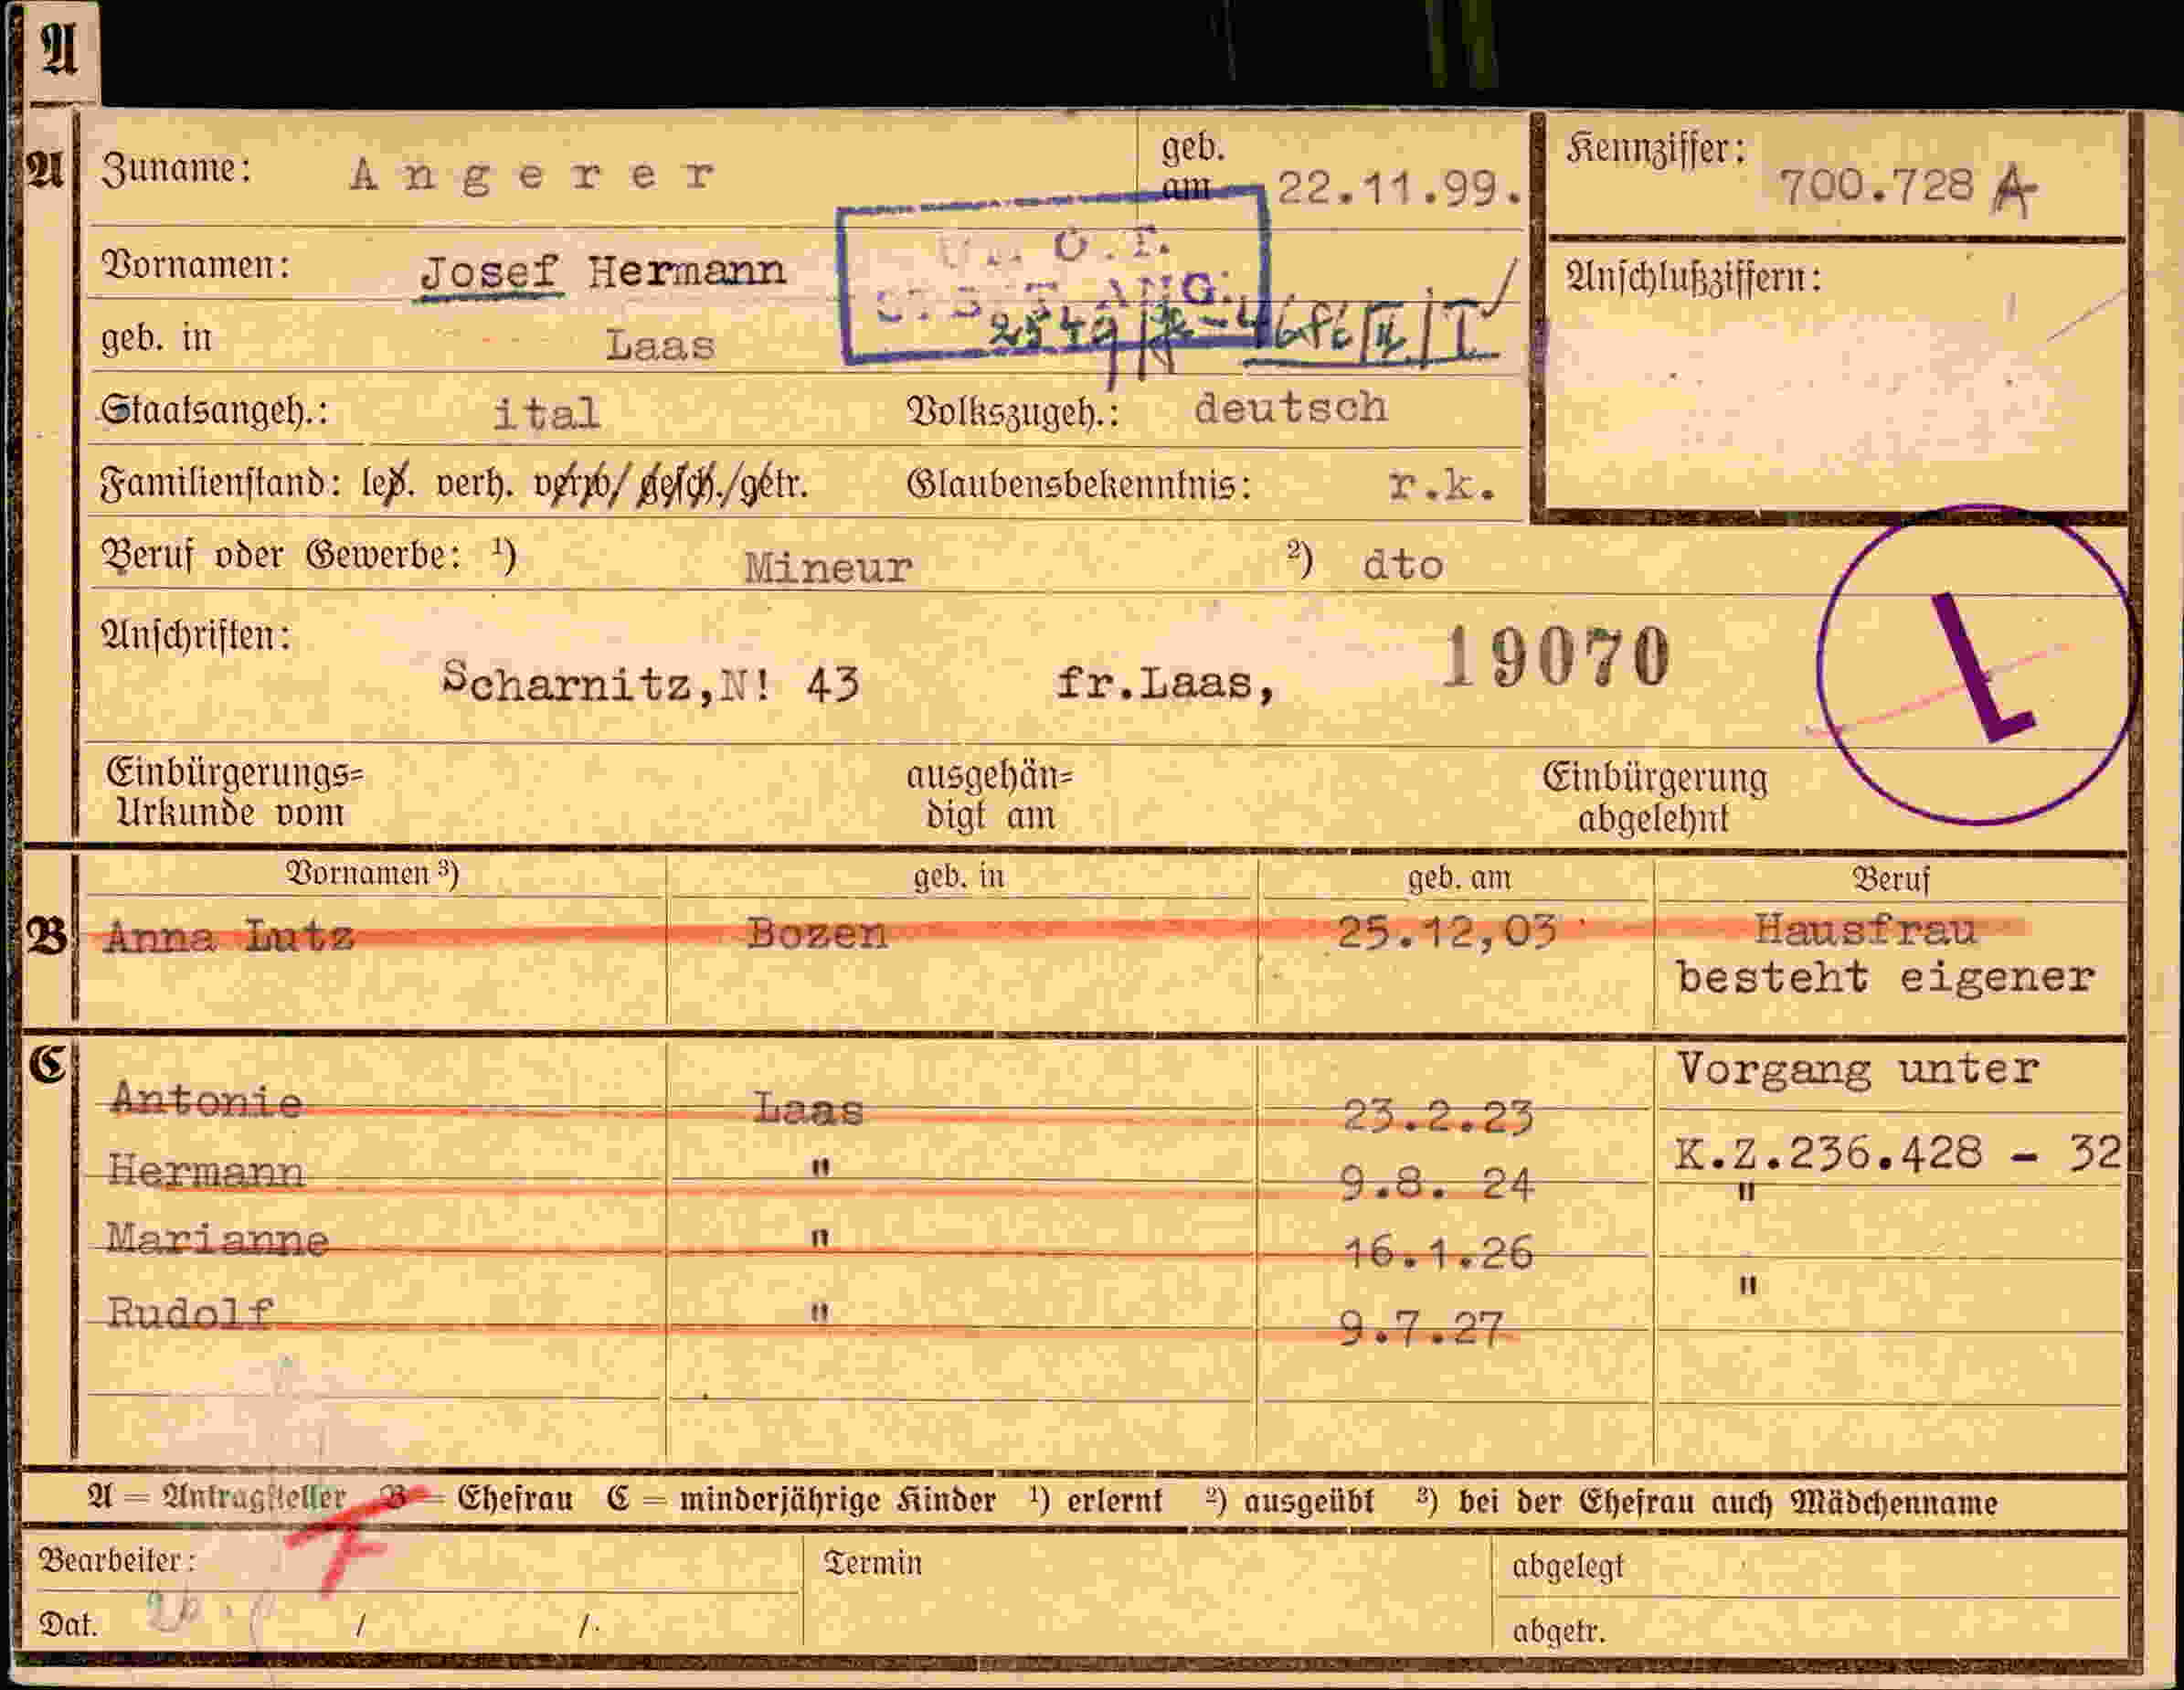 A
A Zuname: Angerer geb. am 22.11.99. Kennziffer: 700.728 A
Vornamen: Josef Hermann Anschlußziffern:
geb. in Laas
Staatsangeh.: ital Volkszugeh.: deutsch
Familienstand: led. verh. verw/ gesch./getr. Glaubensbekenntnis: r.k.
Beruf oder Gewerbe: ¹) Mineur ²) dto
Anschriften: 19070 L
Scharnitz,N! 43 fr.Laas,
Einbürgerungs= ausgehän= Einbürgerung
Urkunde vom digt am abgelehnt
Vornamen ³) geb. in geb. am Beruf
B Anna Lutz Bozen 25.12,03 Hausfrau
besteht eigener
C Vorgang unter
Antonie Laas 23.2.23
K.Z.236.428 - 32
Hermann " 9.8. 24 "
Marianne " 16.1.26
"
Rudolf " 9.7.27
A = Antragsteller B = Ehefrau C = minderjährige Kinder ¹) erlernt ²) ausgeübt ³) bei der Ehefrau auch Mädchenname
F
Bearbeiter: Termin abgelegt
Dat. / /. abgetr.